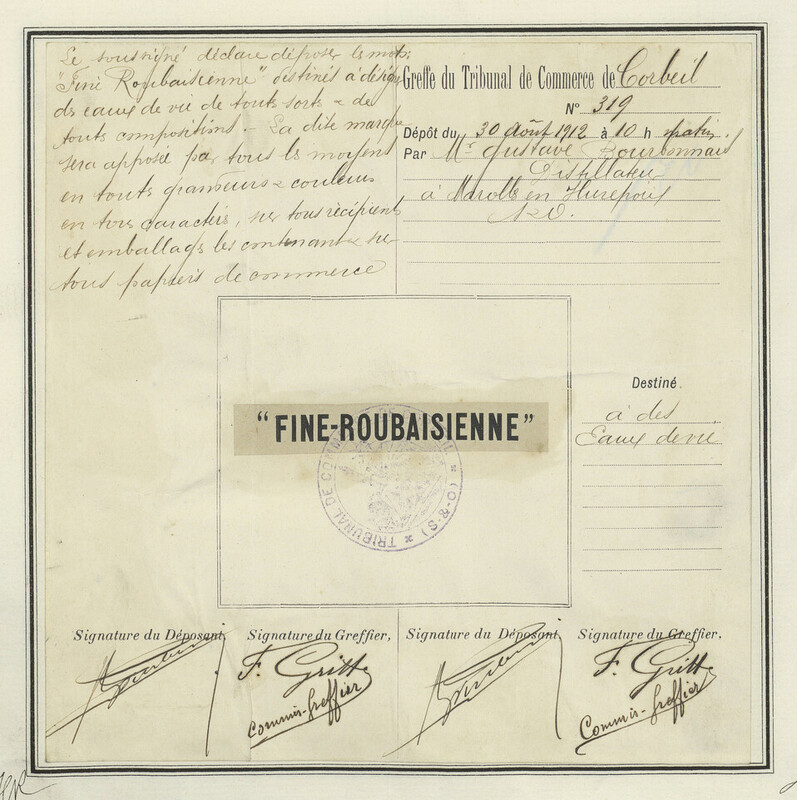 Le soussigné déclare déposer les mots:
"Fine Roubaisienne" destinés à désigner
des eaux de vie de touts sorts & de
touts compositions. - La dite marque
sera apposée par tous les moyens
en touts grandeurs & couleurs
en tous caractères, sur tous récipients
et emballages les contenant & sur
tous papiers de commerce
Greffe du Tribunal de Commerce de Corbeil
N° 319
Dépôt du 30 Août 1912 à 10 h matin
Par Mr Gustave Bourbonnais
Distillateur
à Marolles en Hurepoix
"FINE-ROUBAISIENNE"
TRIBUNAL DE COMM
(O-&-S)
Destiné
à des
Eaux de vie
Signature du Déposant, Signature du Greffier, Signature du Déposant, Signature du Greffier.
F. Gritt F. Gritt
Commis-Greffier Commis-Greffier